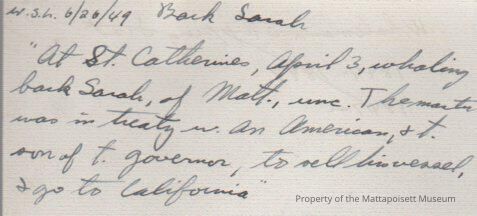 W.S.L. 6/26/49 Bark Sarah
"At St. Catherines, April 3, whaling
bark Sarah, of Matt., unc. The master
was in treaty w. an American, & t.
son of t. governor, to sell his vessel,
& go to California"
Property of the Mattapoisett Museum